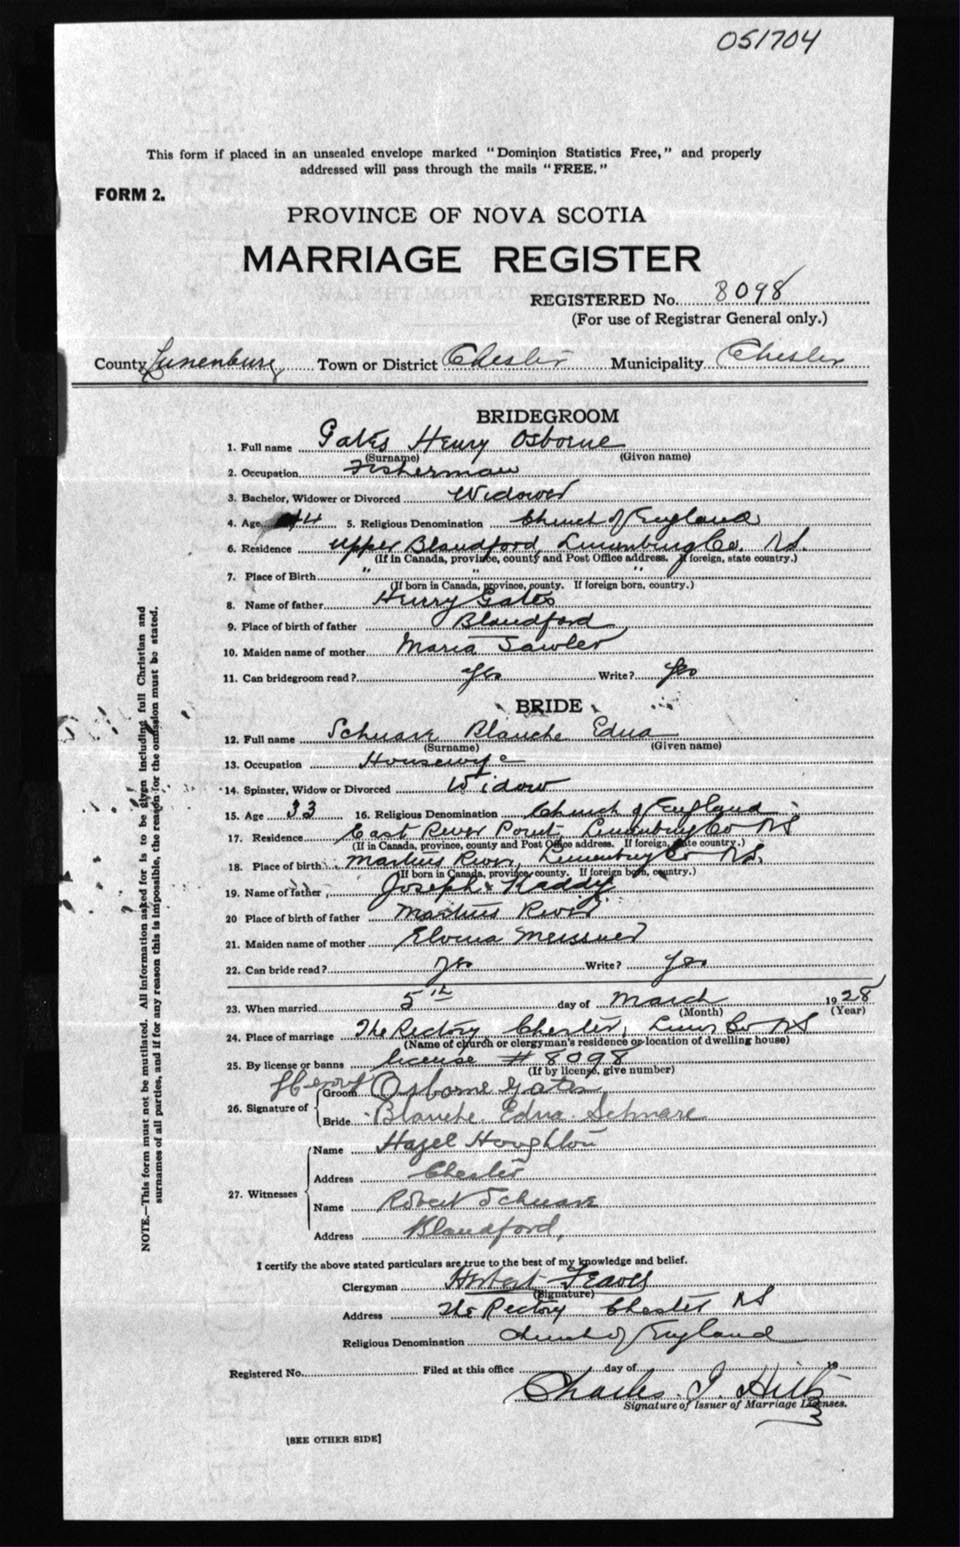 051704
This form if placed in an unsealed envelope marked "Dominion Statistics Free," and properly
addressed will pass through the mails "FREE."
FORM 2.
PROVINCE OF NOVA SCOTIA
MARRIAGE REGISTER
REGISTERED No. 8098
(For use of Registrar General only.)
County Lunenburg Town or District Chester Municipality Chester
BRIDEGROOM
1. Full name Gates Henry Osborne
(Surname) (Given name)
2. Occupation Fisherman
3. Bachelor, Widower or Divorced Widower
4. Age 44 5. Religious Denomination Church of England
6. Residence Upper Blandford, Lunenburg Co. N.S.
(If in Canada, province, county and Post Office address. If foreign, state country.)
7. Place of Birth " " "
(If born in Canada, province, county. If foreign born, country.)
8. Name of father Henry Gates
9. Place of birth of father Blandford
10. Maiden name of mother Maria Sawler
11. Can bridegroom read? Yes Write? Yes
BRIDE
12. Full name Schnare Blanche Edna
(Surname) (Given name)
13. Occupation Housewife
14. Spinster, Widow or Divorced Widow
15. Age 33 16. Religious Denomination Church of England
17. Residence East River Point, Lunenburg Co NS
(If in Canada, province, county and Post Office address. If foreign, state country.)
18. Place of birth Martins River, Lunenburg Co N.S.
(If born in Canada, province, county. If foreign born, country.)
19. Name of father Joseph Kaddy
20 Place of birth of father Martins River
21. Maiden name of mother Elvina Meisner
22. Can bride read? Yes Write? Yes
23. When married 5th day of March 1928
(Month) (Year)
24. Place of marriage The Rectory Chester, Lun Co NS
(Name of church or clergyman's residence or location of dwelling house)
25. By license or banns license # 8098
(If by license, give number)
26. Signature of Groom Henry Osborne Gates
Bride Blanche Edna Schnare
27. Witnesses Name Hazel Houghton
Address Chester
Name Robert Schnare
Address Blandford,
I certify the above stated particulars are true to the best of my knowledge and belief.
Clergyman Herbert Feaver
(Signature)
Address The Rectory Chester NS
Religious Denomination Church of England
Registered No. Filed at this office day of 19
Charles I. Hilts
Signature of Issuer of Marriage Licenses.
[SEE OTHER SIDE]
NOTE.—This form must not be mutilated. All information asked for is to be given including full Christian and
surnames of all parties, and if for any reason this is impossible, the reason for the omission must be stated.